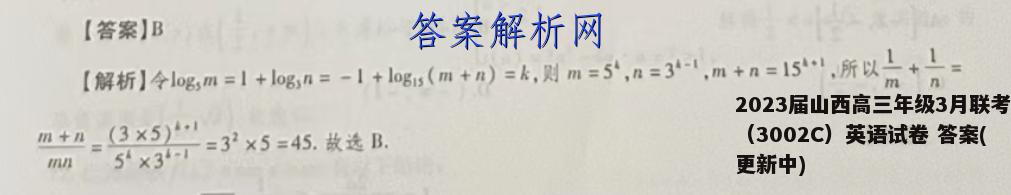 答案解析网
【答案】B
【解析】令log₅m=1+log₃n=-1+log₁₅(m+n)=k,则 m=5ᵏ,n=3ᵏ⁻¹,m+n=15ᵏ⁺¹,所以1/m+1/n=
(m+n)/mn=(3×5)ᵏ⁺¹/(5ᵏ×3ᵏ⁻¹)=3²×5=45. 故选 B.
2023届山西高三年级3月联考
（3002C）英语试卷 答案(
更新中)